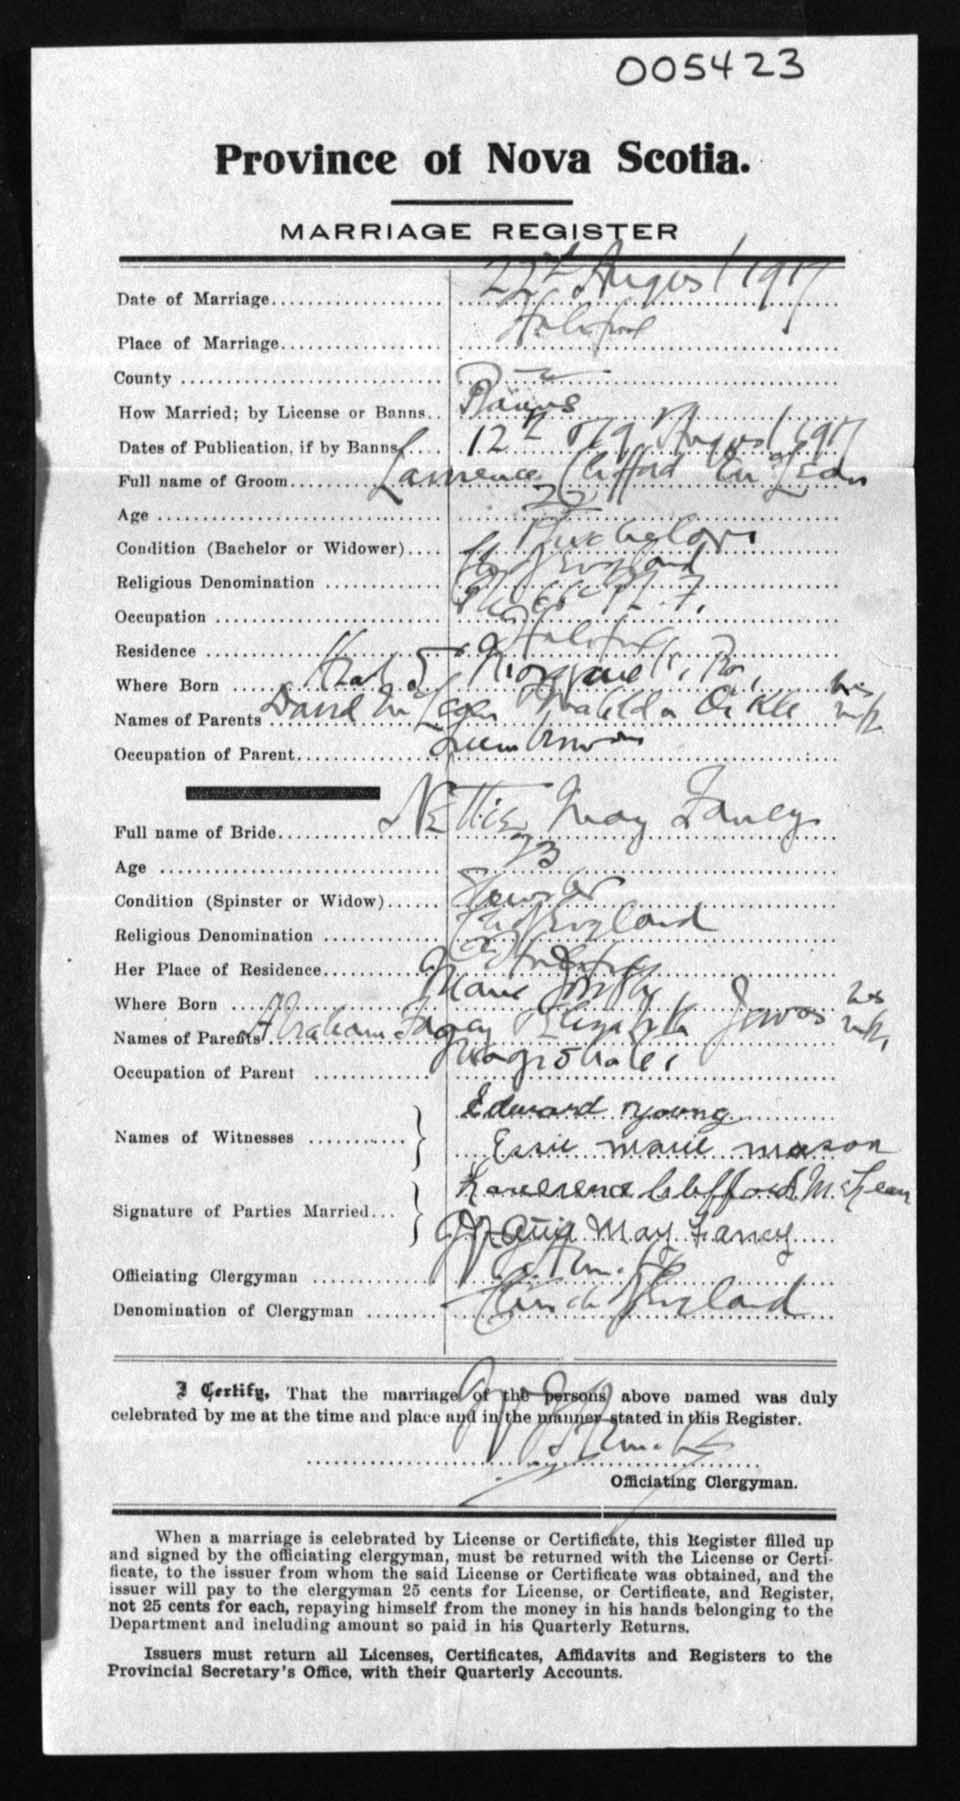 005423
Province of Nova Scotia.
MARRIAGE REGISTER
Date of Marriage 22nd August 1917
Place of Marriage Halifax
County
How Married; by License or Banns Banns
Dates of Publication, if by Banns 12th & 19 August 1917
Full name of Groom Lawrence Clifford McLean
Age 22
Condition (Bachelor or Widower) Bachelor
Religious Denomination Ch of England
Occupation
Residence Halifax
Where Born
Names of Parents David Matilda his wife
Occupation of Parent Lumberman
Full name of Bride Nettie May Fancy
Age 23
Condition (Spinster or Widow)
Religious Denomination Ch of England
Her Place of Residence Halifax
Where Born
Names of Parents Abraham Fancy Elizabeth his wife
Occupation of Parent
Names of Witnesses Edward Young
Essie Marie Mason
Signature of Parties Married Clifford McLean
May Fancy
Officiating Clergyman
Denomination of Clergyman Church of England
I Certify, That the marriage of the persons above named was duly
celebrated by me at the time and place and in the manner stated in this Register.
Officiating Clergyman.
When a marriage is celebrated by License or Certificate, this Register filled up
and signed by the officiating clergyman, must be returned with the License or Certi-
ficate, to the issuer from whom the said License or Certificate was obtained, and the
issuer will pay to the clergyman 25 cents for License, or Certificate, and Register,
not 25 cents for each, repaying himself from the money in his hands belonging to the
Department and including amount so paid in his Quarterly Returns.
Issuers must return all Licenses, Certificates, Affidavits and Registers to the
Provincial Secretary's Office, with their Quarterly Accounts.